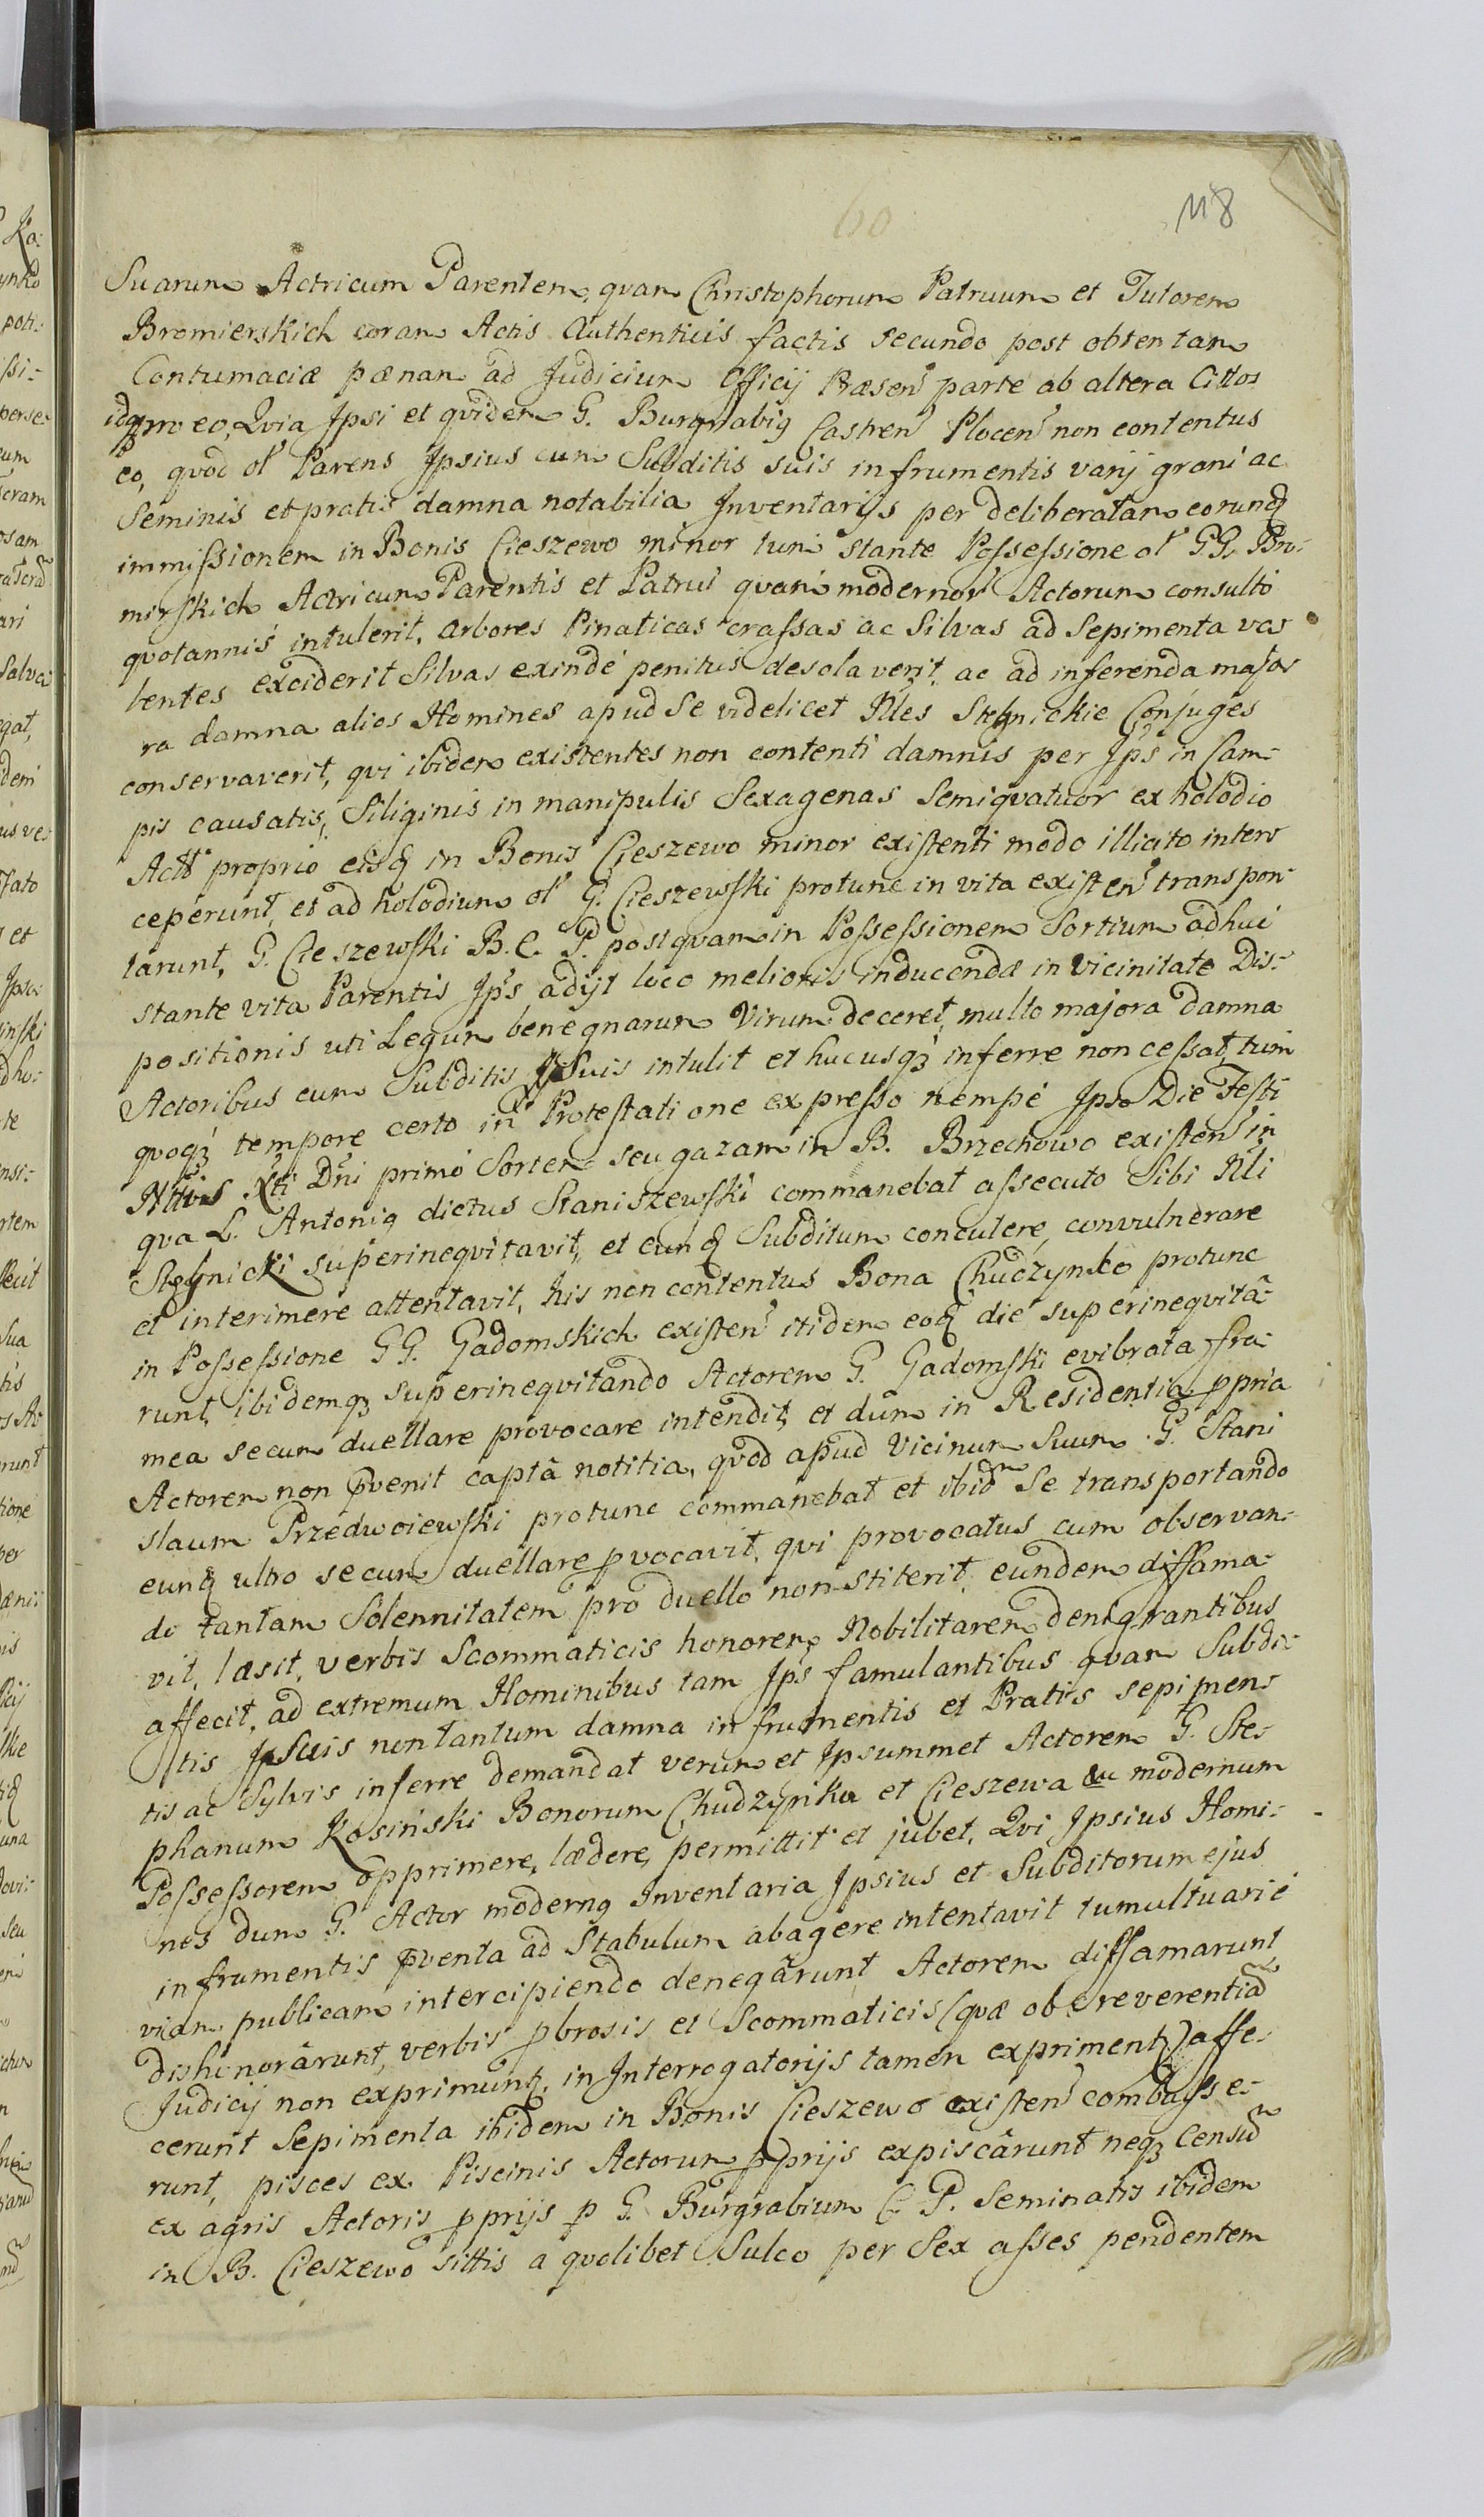 118
60
Suarum Actricum Parentem, quam Christophorum Patruum et Tutorem
Bromierskich coram Actis Authenticis factis secundo post obtentam
Contumaciæ pænam ad Judicium Officij Præsen parte ab altera Cittos
idq pro eo, Qvia Ipsi et qvidem G. Burgrabig Castren Plocen non contentus
eo, qvod ol Parens Ipsius cum Subditis suis in frumentis varij grani ac
Seminis et pratis damna notabilia Inventarijs per deliberatam eorunq
immissionem in Bonis Cieszewo minor tum stante Possessione ol GG. Bro-
mirskich Actricum Parentis et Patrui quam modernor Actorum consulto
qvotannis intulerit, arbores Pinaticas crassas ac Silvas ad Sepimenta va-
lentes exciderit Silvas exinde penitus desolaverit, ac ad inferenda majo-
ra damna alios Homines apud Se videlicet Nles Stegnickie Conjuges
conservaverit, qvi ibidem existentes non contenti damnis per Ips in Cam-
pis causatis, Siliginis in manipulis Sexagenas Semiqvatuor ex holodio
Actt proprio eisq in Bonis Cieszewo minor existenti modo illicito inter-
ceperunt, et ad holodium ol G. Cieszewski protunc in vita existen transpor-
tarunt, G. Cieszewski B. C. P. postqvam in Possessionem Sortium adhuc
stante vita Parentis Ips adijt loco melioris inducendæ in Vicinitate Dis-
positionis uti Legum bene gnarum Virum deceret, multo majora damna
Actoribus cum Subditis Suis intulit et hucusqz inferre non cessat, tum
qvoqz tempore certo in Protestatione expresso nempe Ipso Die Festi
Nttvis Xti Dni primo Sortem seu gazam in B. Brzechowo existen in
qva L. Antonig dictus Staniszewski commanebat assecuto Sibi Nli
Stegnicki superineqvitavit, et eunq Subditum conculere, convulnerare
et interimere attentavit, his non contentus Bona Chudzynko protunc
in Possessione GG. Gadomskich existen itidem eoq die superineqvitâ-
runt, ibidemqz superineqvitando Actorem G. Gadomski evibrata fra-
mea secum duellare provocare intendit, et dum in Residentia ppria
Actorem non pvenit captâ notitia, qvod apud Vicinum Suum G. Stani
slaum Przedwoiewski protunc commanebat et ibid Se transportando
eunq ultro secum duellare pvocavit, qvi provocatus cum observan-
do tantam Solennitatem pro duello non stiterit, eundem diffama-
vit, læsit, verbis Scommaticis honorem Nobilitarem denigrantibus
affecit, ad extremum Hominibus tam Ips famulantibus qvam Subdi-
tis Suis non tantum damna in frumentis et Pratis sepimen-
tis ac Sylvis inferre demandat verum et Ipsummet Actorem G. Ste-
phanum Kosinski Bonorum Chudzynka et Cieszewa modernum
Possessorem opprimere, lædere, permittit et jubet, Qvi Ipsius Homi-
nes dum G. Actor moderng Inventaria Ipsius et Subditorum ejus
in frumentis pventa ad Stabulum abagere intentavit tumultuarie
viam publicam intercipiendo denegârunt Actorem diffamarunt
dishonorârunt, verbis pbrosis et Scommaticis (qvæ ob reverentia
Judicij non exprimuntz, in Interrogatorijs tamen exprimentz) affe-
cerunt Sepimenta ibidem in Bonis Cieszewo existen combusse-
runt, pisces ex Piscinis Actorum pprijs expiscârunt neqz Censu
ex agris Actoris pprijs p G. Burgrabium C. P. Seminatis ibidem
in B. Cieszewo sittis a qvolibet Sulco per Sex asses pendentem